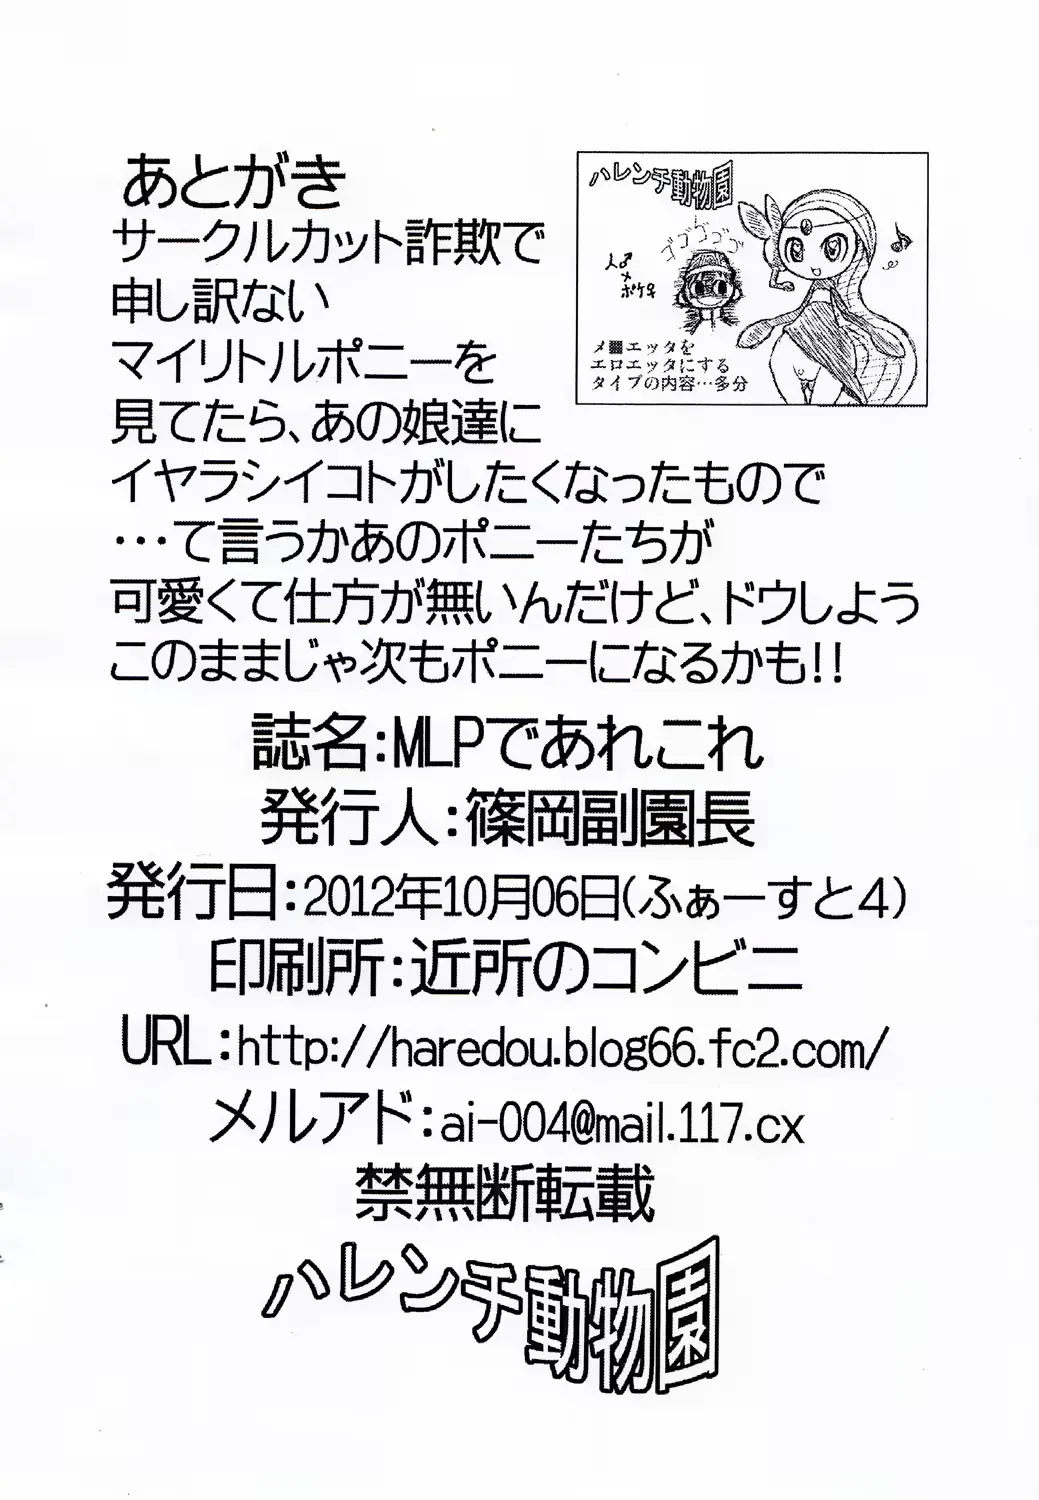 あとがき
サークルカット詐欺で
申し訳ない
マイリトルポニーを
見てたら、あの娘達に
イヤラシイコトがしたくなったもので
・・・て言うかあのポニーたちが
可愛くて仕方が無いんだけど、ドウしよう
このままじゃ次もポニーになるかも!!
ハレンチ動物園
ゴゴゴゴゴ
人♂
×
ポケ♀
メ■エッタを
エロエッタにする
タイプの内容…多分
誌名:MLPであれこれ
発行人:篠岡副園長
発行日:2012年10月06日(ふぁーすと4)
印刷所:近所のコンビニ
URL:http://haredou.blog66.fc2.com/
メルアド:ai-004@mail.117.cx
禁無断転載
ハレンチ動物園